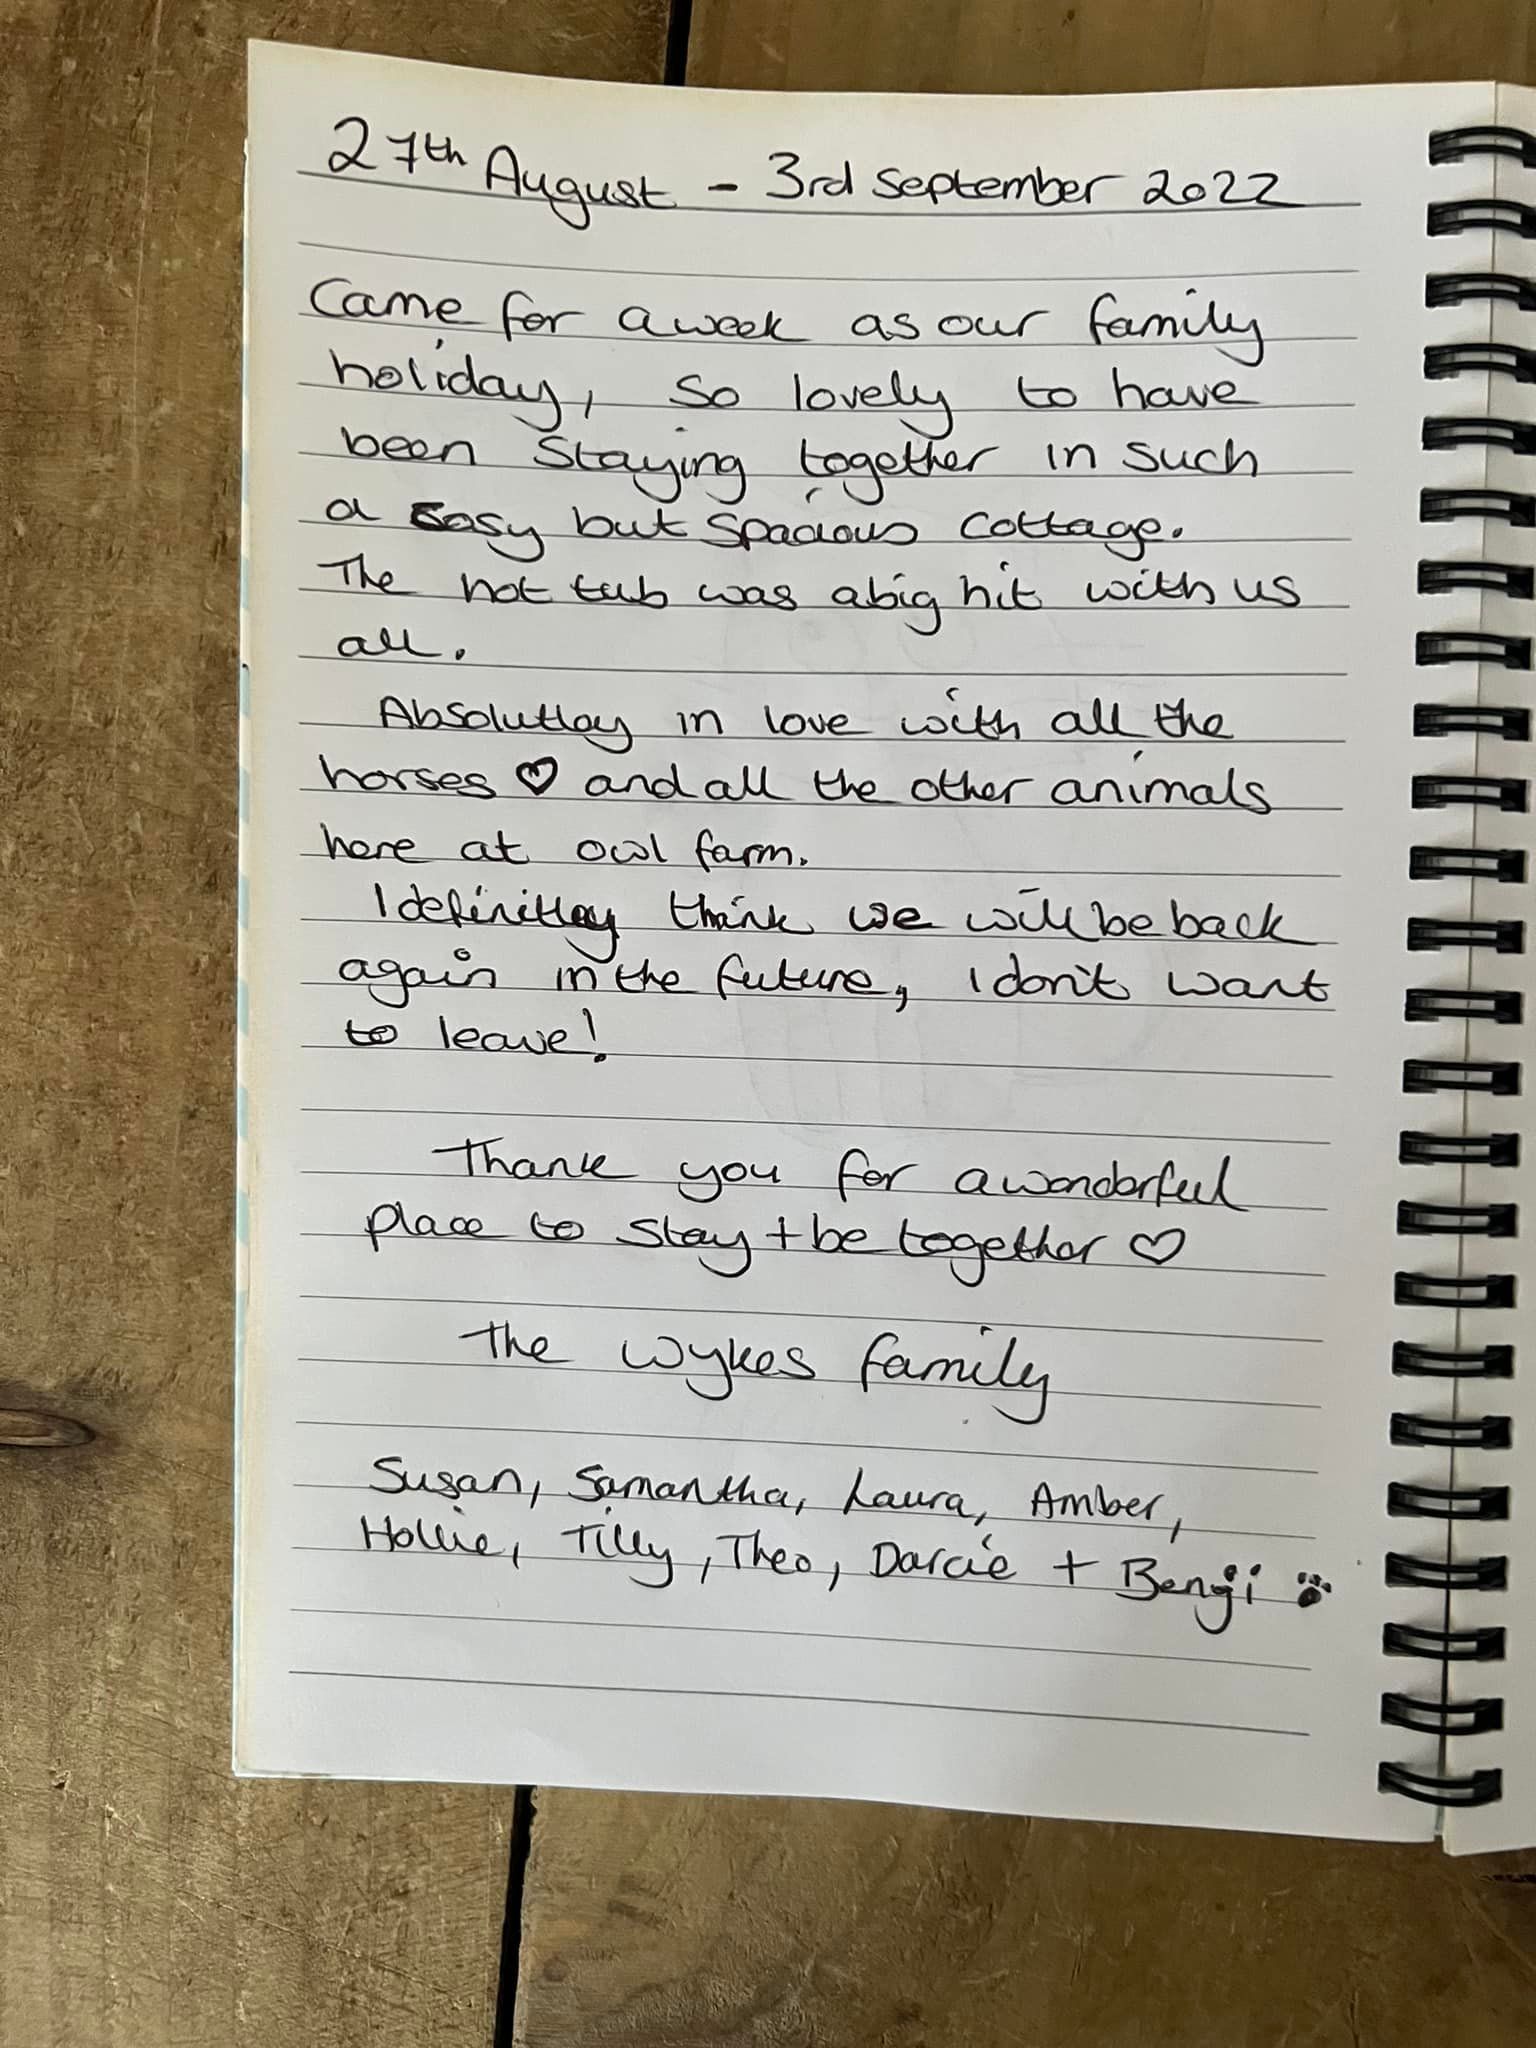 27th August - 3rd September 2022
Came for a week as our family
holiday, so lovely to have
been staying together in such
a cosy but spacious cottage.
The hot tub was a big hit with us
all.
Absolutley in love with all the
horses ♡ and all the other animals
here at owl farm.
I definitley think we will be back
again in the future, I don't want
to leave!
Thank you for a wonderful
place to stay + be together ♡
The Wykes family
Susan, Samantha, Laura, Amber,
Hollie, Tilly, Theo, Darcie + Benji 🐾